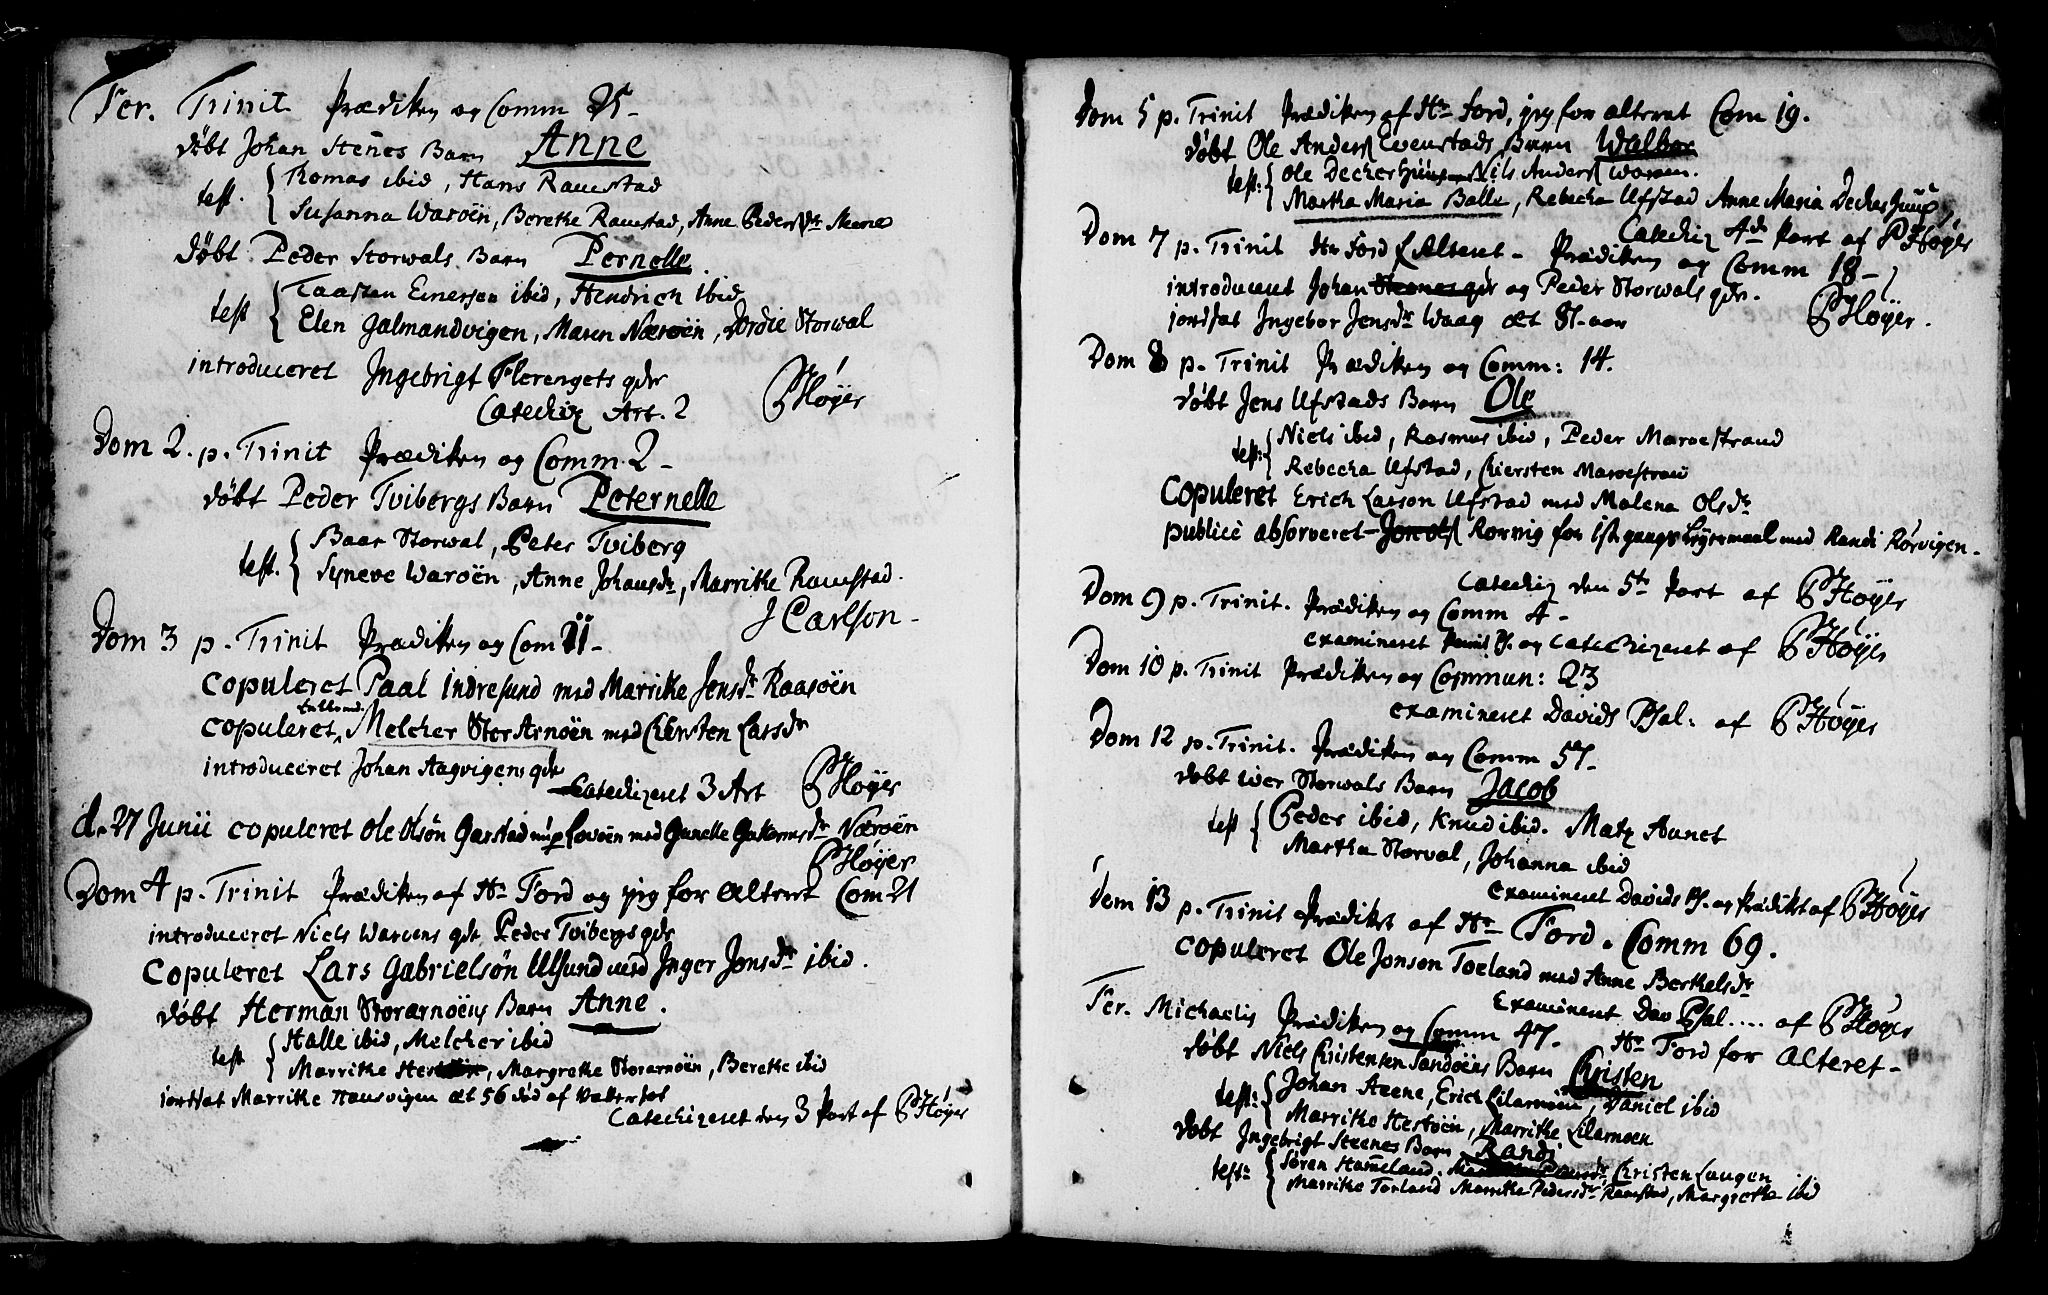 Fer. Trinit Prædiken og Comm 25-
døbt Johan Stenes Barn Anne
test. Tomas ibid, Hans Ramstad
Susanna Waröen, Berethe Ramstad, Anne Pedersdr Steene
døbt Peder Storwals Barn Pernelle
test Taasten Einersen ibid, Hendrich ibid
Elen Galmandvigen, Maren Næröen, Dordie Storwal
introduceret Ingebrigt Flerengets qde
Catechiz Art. 2 PHøyer
Dom 2. p. Trinit Prædiken og Comm. 2-
døbt Peder Tvibergs Barn Peternelle
test. Baar Storwal, Peter Tviberg
Syneve Waröen, Anne Johansdr, Marrithe Ramstad.
J Carlson-
Dom 3 p. Trinit Prædiken og Com 11-
copuleret Paal Indresund med Marrithe Jensdr Raasöen
copuleret Melcher Stor Arnöen med Chersten Larsdr
introduceret Johan Aagvigens qde
Catechizeret 3 Art PHøyer
d. 27 Junii copuleret Ole Olsön Garstad med Gunelle Næröen
PHøyer
Dom 4 p. Trinit Prædiken af Hr Ford og jeg for Alteret Com 21
introduceret Niels Waroens qde Peder Tvibergs qde
copuleret Lars Gabrielsön Ulsund med Inger Jonsdr ibid.
døbt Herman Storarnöens Barn Anne.
test Halle ibid, Melcher ibid
Marrithe, Margrethe Storarnöen, Berethe ibid
jordfat Marrithe Hansvigen æt 56 död af
Catechizeret den 3 Part af PHøyer
Dom 5 p. Trinit Prædiken af Hr Ford, jeg for alteret Com 19.
døbt Ole Anders Evenstads Barn Walbor
test: Ole Nils Anders Waroen.
Martha Maria Balle, Rebecha Ufstad Anne Maria
Catechiz 4de Part af PHøyer
Dom 7 p. Trinit Hr Ford f Alteret- Prædiken og Comm 18-
introduceret Johan Steenes qde og Peder Storwals qde.
jordfat Ingebor Jensdr Waag æt 81-aar PHöyer.
Dom 8 p. Trinit Prædiken og Comm: 14.
døbt Jens Ufstads Barn Ole
test: Niels ibid, Rasmus ibid, Peder Maroestrand
Rebecha Ufstad, Chiersten Maroestrand
copuleret Erich Larson Ufstad med Malena Olsdr
publice absolveret Rørvig for 1st gangs Leyermaal med Randi Rörvigen-
Catechiz den 5te Part af PHöyer
Dom 9 p. Trinit. Prædiken og Comm 4-
examineret og catechizeret af PHöyer
Dom 10 p. Trinit Prædiken og Commun: 23
examineret Davids Psal. af PHöyer
Dom 12 p. Trinit. Prædiken og Comm 57.
døbt Iver Storwals Barn Jacob
test Peder ibid, Knud ibid. Matz Aunet
Martha Storval, Johanna ibid
examineret Davids Ps. og Prædiket af PHöyer
Dom 13 p. Trinit Prædiket af Hr Ford. Comm 69.
copuleret Ole Jonson Torland med Anne Berthelsdr
Examineret Dav Psal.... af PHöyer
Fer. Michaelis Prædiken og Comm 47. Hr Ford for Alteret-
döbt Niels Christensen Sandöens Barn Christen
test: Johan Steene, Erich Lilarnöen, Daniel ibid
Marrithe Hestöen, Marrithe Lilarnoen
döbt Ingebrigt Steenes Barn Randi
test: Sören Hameland. Christen Laugen
Marrithe Torland Marrithe Pedersdr Ramstad, Margrethe ibid